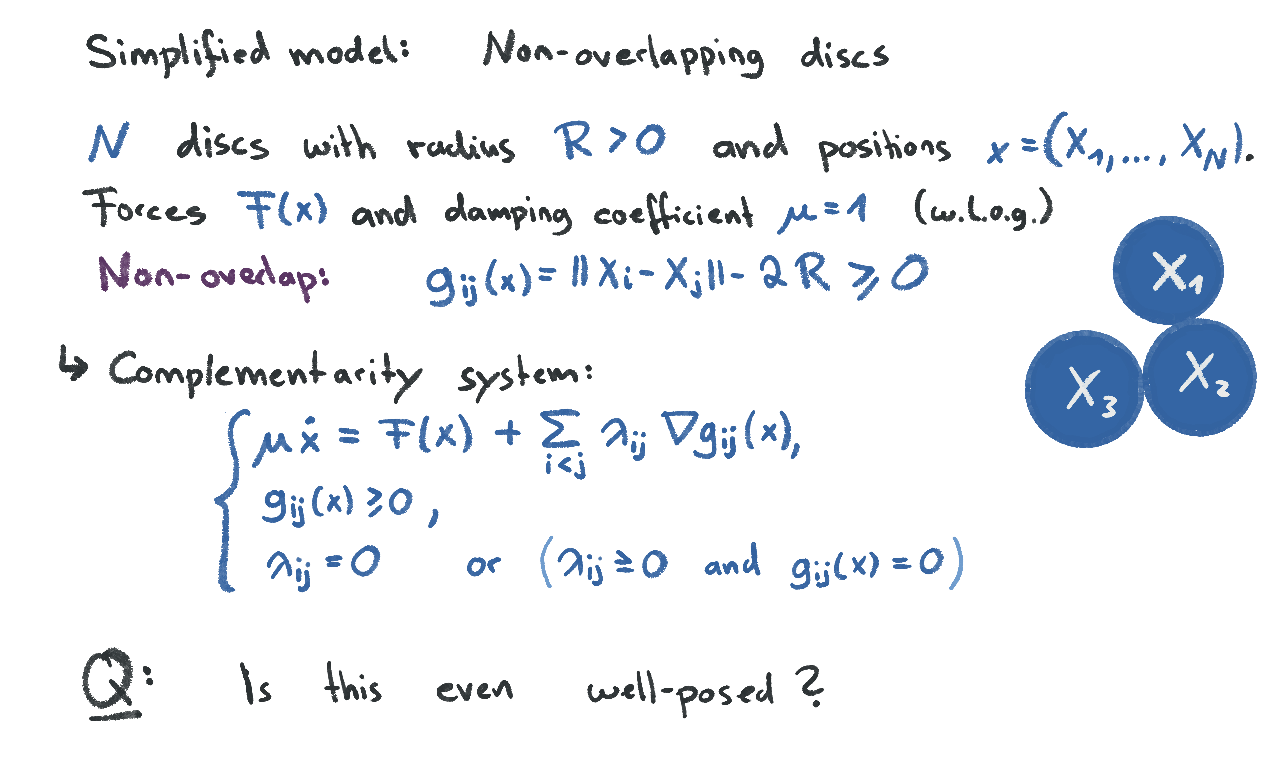 Simplified model: Non-overlapping discs
N discs with radius R > 0 and positions x = (X₁, ..., X_N).
Forces F(x) and damping coefficient μ = 1 (w.l.o.g.)
Non-overlap: gᵢⱼ(x) = ‖Xᵢ - Xⱼ‖ - 2R ≥ 0
X₁
X₃ X₂
↳ Complementarity system:
μẋ = F(x) + ∑_{i<j} λᵢⱼ ∇gᵢⱼ(x),
gᵢⱼ(x) ≥ 0,
λᵢⱼ = 0 or (λᵢⱼ ≥ 0 and gᵢⱼ(x) = 0)
Q: Is this even well-posed?